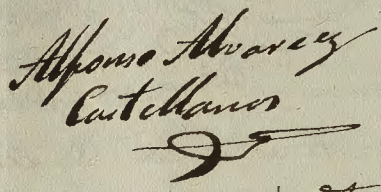 Alfonso Alvarez
Castellanos